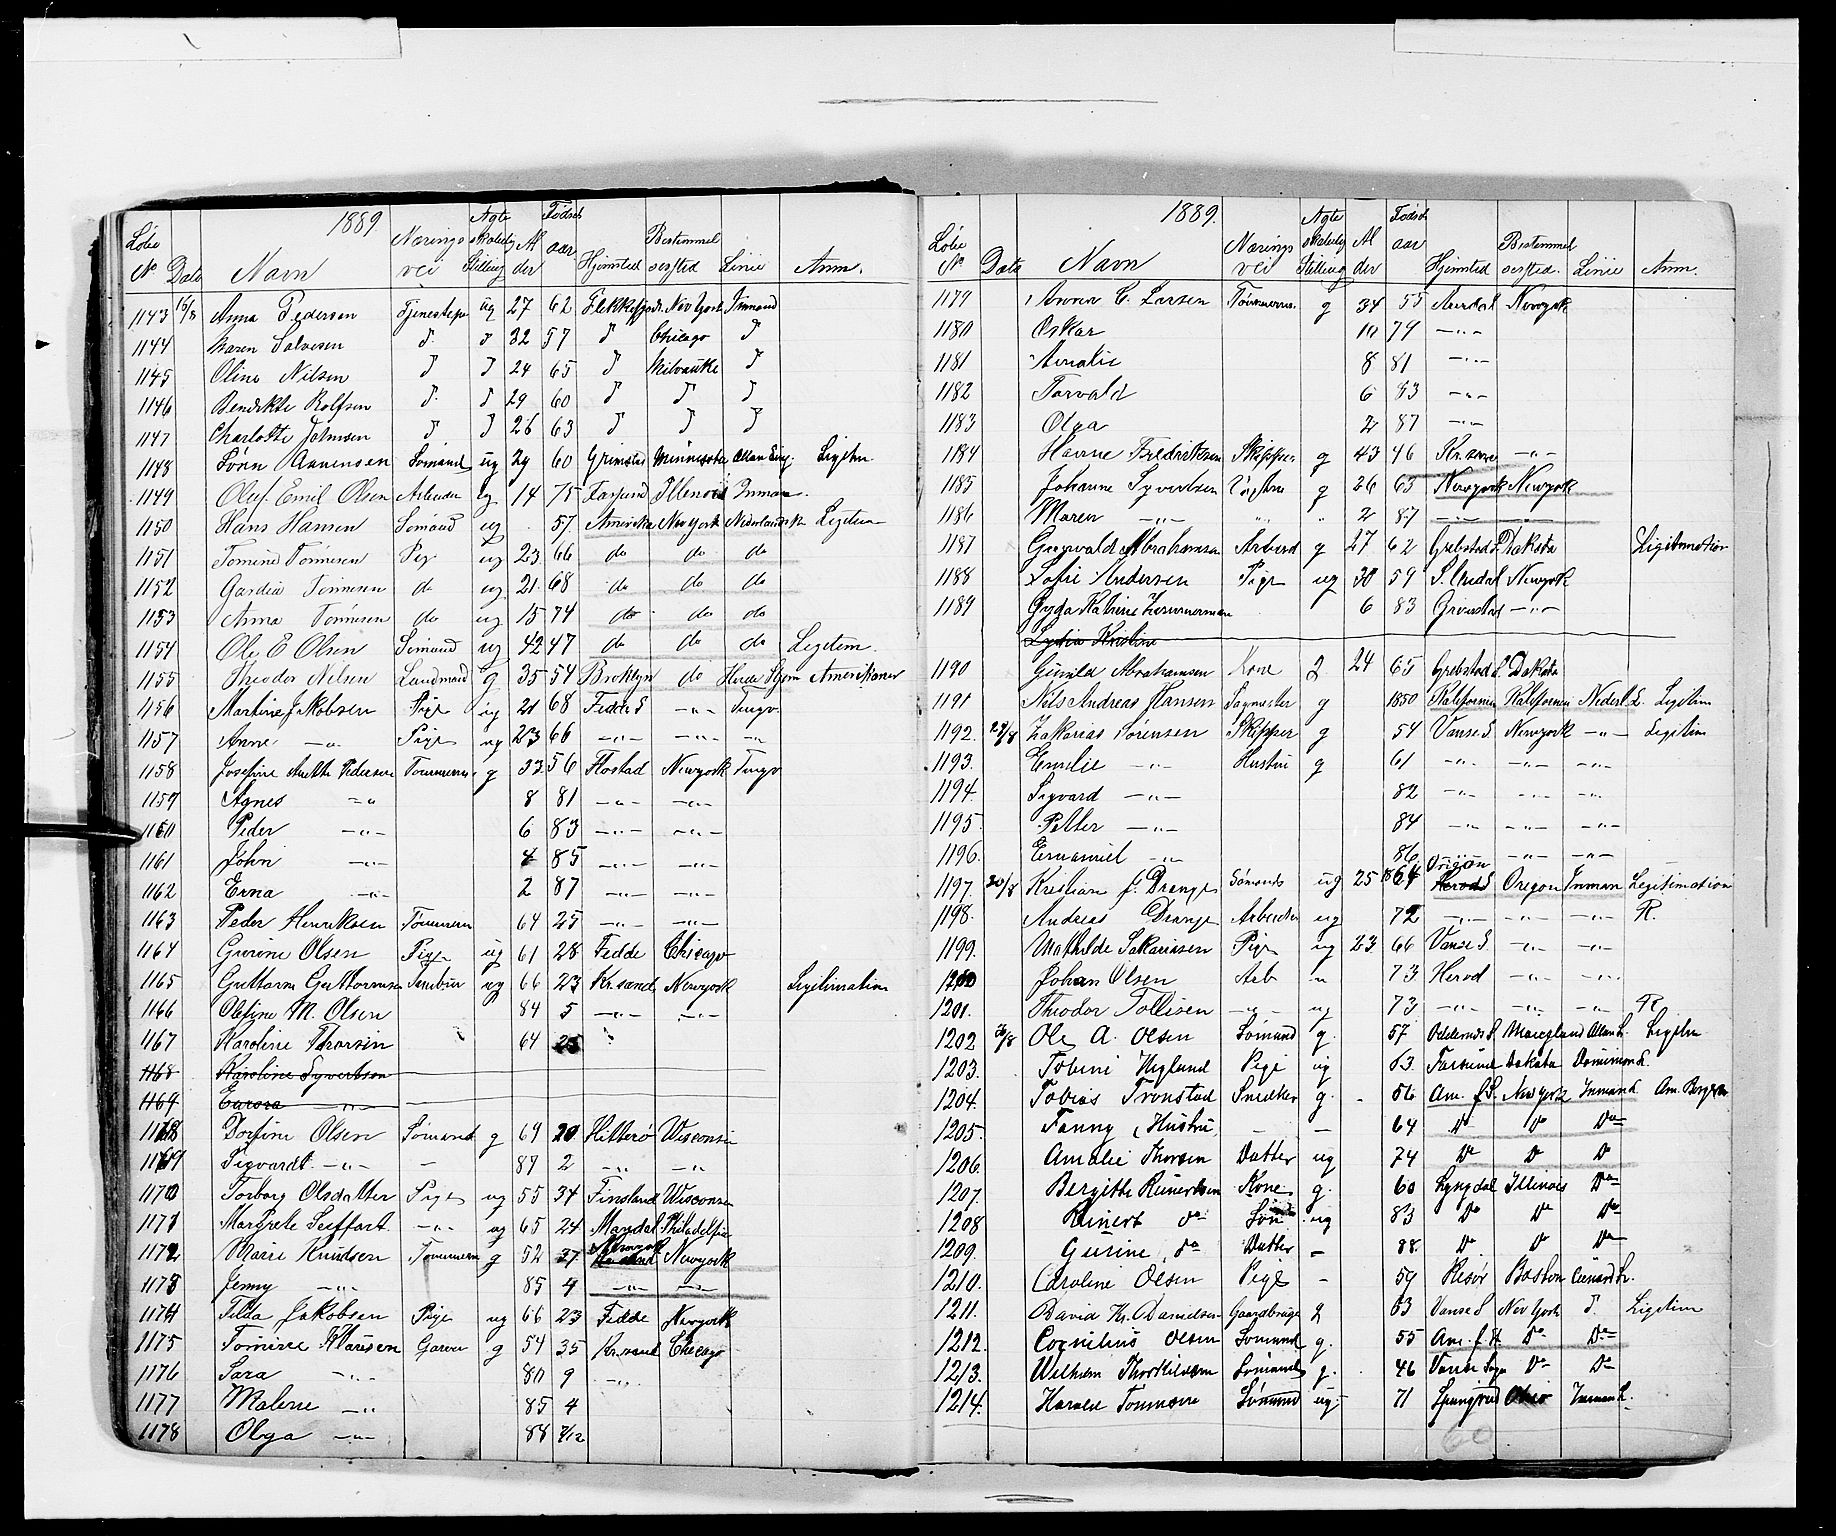 1889.
Løbe No Dato Navn Nærings vei Ægte skabelig Stilling Al der Fødsels aar Hjemsted Bestemmel sessted Linie Anm.
1143 15/8 Anna Pedersen Tjenestepi ug 27 62 Flekkefjord New York Inmand
1144 Maren Salvesen D. D 32 57 D Chicago D
1145 Oline Nilsen D D 24 65 D Milvauke D
1146 Bendikte Rolfsen D. D 29 60 D D D
1147 Charlotte Johnsen D D 26 63 D D D
1148 Tønn Aanensen Sømand ug 29 60 Grimstad Minnesota Allan Ligitm
1149 Oluf Emil Olsen Arbeider ug 14 75 Farsund Illenois Inman
1150 Hans Hansen Sømand ug 57. Amerika New York Nederlandsk Ligitim
1151 Tomine Tønnesen Pig ug 23 66 do do do
1152 Gardia Tønnesen do ug 21. 68 do do do
1153 Anna Tønnesen do ug 15 74 do do do
1154 Ole E Olsen Sømand ug 42 47 do do do Legitim.
1155 Theodor Nelsen Landmand g 35 54 Broklyn do Amerikaner
1156 Martine Jakobsen Pige ug 21 68 Fedde S —"— Tingv
1157 Anne —"— Pige ug 23 66 —"— —"— —"—
1158 Josefine Anette Pedersen Tømmerm. g 33 56 Flostad Newyork Tingv
1159 Agnes —"— 8 81 —"— —"—
1160 Peder —"— 6 83 —"— —"—
1161 John —"— 4 85 —"— —"—
1162 Erna —"— 2 87 —"— —"—
1163 Peder Henriksen Tømmerm 64 25 —"— —"—
1164 Gurine Olsen Pige ug 61 28 Fedde Chicago
1165 Guttorm Guttormsen ug 66 23 Kr.sand Newyork Legitimation
1166 Olefine M. Olsen 84 5 —"— —"—
1167 Karoline Thorsin 64 25
1168 Karoline Syvertsen
1169 Aurora —"—
1168 Dorfine Olsen Sømand g 69 20 Hitterø Wisconsin
1169 Sigvardt —"— — 87 2 —"— —"—
1170 Torborg Olsdatter Pige ug 55 34 Finsland Wisconsin
1171 Margrete Seiffart —"— ug 65 24 Mandal Philadelfia
1172 Marie Knudsen Tømmerm g 52 37 Newyork Newyork
1173 Jenny —"— 85 4 —"— —"—
1174 Tilda Jakobsen Pige ug 66 23 Fedde Newyork
1175 Tomine Hansen Garver g 54 35 Kr.sand Chicago
1176 Sara —"— 80 9 —"—
1177 Malene —"— 85 4
1178 Olga —"— 88 7/12
1889.
Løbe No Dato Navn Nærings vei Ægte skabelig Stilling Al der Fødsels aar Hjemsted Bestemmel sessted. Linie Anm.
1179 Annen C. Larsen Tømmerm. g 34 55 Arendal Newyork
1180 Oskar 10 79 —"—
1181 Amalie 8 81 —"—
1182 Torvald 6 83 —"—
1183 Olga 2 87 —"—
1184 Hanne Fredriksen Skipper g 43 46 Kr.sand —"—
1185 Johanne Syvertsen g 26 63 Newyork Newyork
1186 Maren —"— " " 2 87 —"— —"—
1187 Gunvald Abrahamsen Arbeid g 27 62 Grebstad S. Dakota Ligitimation
1188 Sofie Andersen Pige ug 30 59 Newyork
1189 Gyda Katrine Zimmerman 6 83 Grimstad —"—
Lydia Kristine
1190 Gunila Abrahamsen Kone g 24 65 Grebstad S. Dakota
1191 Nils Andreas Hansen Sagmester g 1850 Kaliefornien Kaliefornien Nederl L. Legitim
1192. 29/8 Zakarias Sørensen Skipper g 54 Vanse S Newyork —"— Legitim
1193. Emelie —"— Hustru g 61 —"— —"— —"—
1194. Sigvard —"— 82 —"— —"— —"—
1195. Petter —"— 84 —"— —"— —"—
1196. Emanuel —"— 86. —"— —"— —"—
1197. 30/8 Kristian J. Drange Sømand ug 25 1864 Origon Herod S Oregon Inman Legitimation
1198. Andreas Drange Arbeider ug 72 —"— —"— —"— R.
1199. Mathilde Sakariasen Pige ug 23 66 Vanse S. —"— —"—
1200 Johan Olsen Arb " 73. Herod —"— —"—
1201. Theodor Tollisen —"— ug 73 —"— —"— —"— R.
1202 Ole A. Olsen Sømand g. 57 Oddernes S. Maryland Allan L. Ligitm
1203. Tobine Hegland Pige ug 63. Farsund Dakota Dominion L.
1204. Tobias Tronstad Snedker g. 56 Am. f. S. New York Inman L Am. Borger
1205. Fanny (Hustru — — 64 Do Do Do
1206. Amalie Thorsen Datter ug 74 Do Do Do
1207. Bergitte Reinertsen Kone g. 60 Lyngdal Illinois Do
1208 Reinert do Søn ug 83 Do Do Do
1209. Gurine do Datter — 88. Do Do Do
1210. Caroline Olsen Pige — 59 Risør Boston Cunard L.
1211. David Kr. Danielsen Gaardbruge g 63 Vanse S New York D. Ligitim
1212. Cornelius Olsen Sømand g. 55 Am. f. H. Do Do
1213. Wilhelm Thorkildsen Sømand g. 46 Vanse Sogn Do Do
1214. Harald Tønnesen Sømand ug. 71 Ohio Inman L.
60